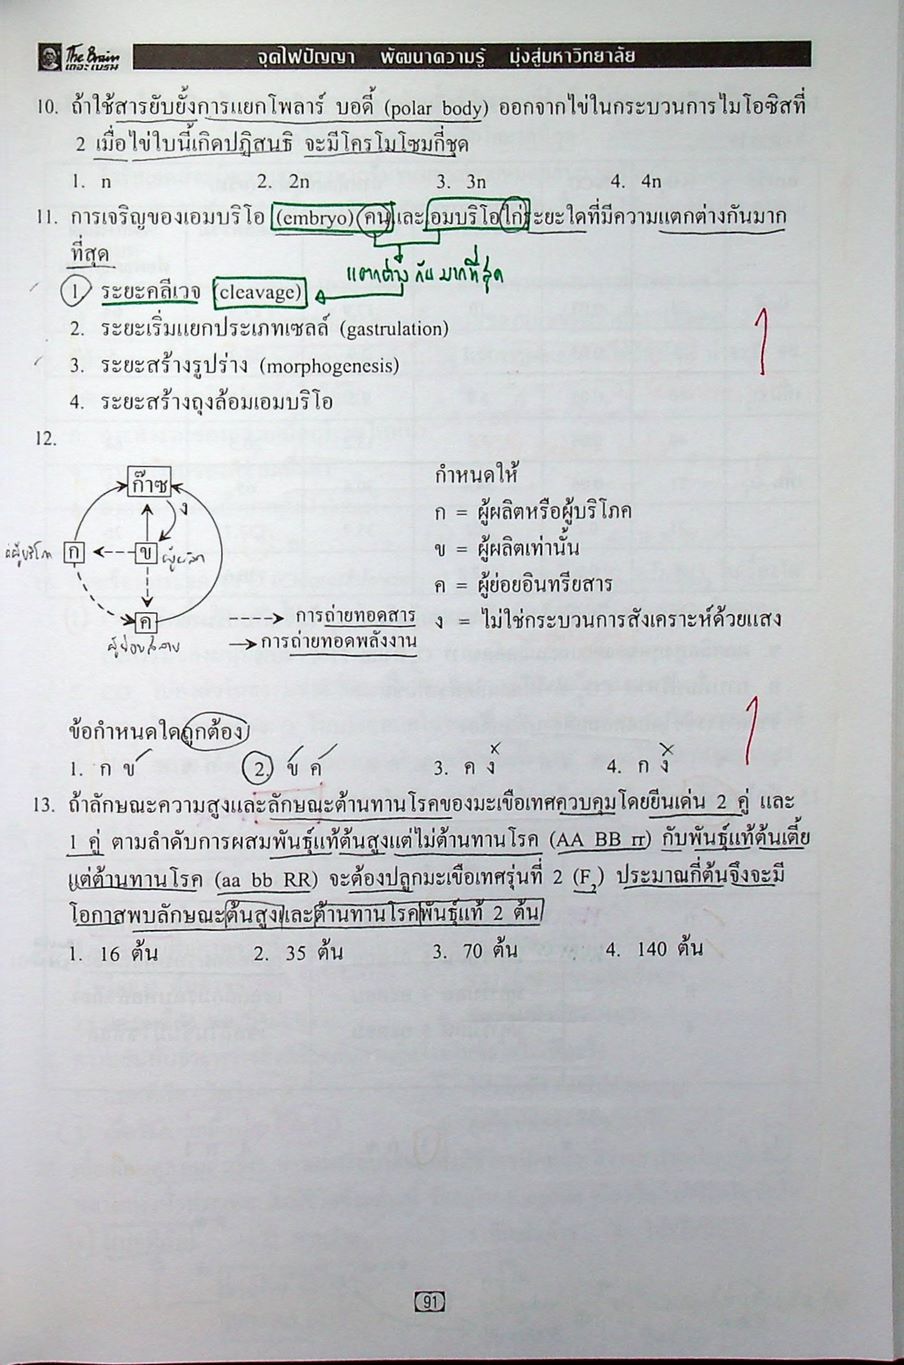 The Brain
เดอะเบรน
จุดไฟปัญญา พัฒนาความรู้ มุ่งสู่มหาวิทยาลัย
10. ถ้าใช้สารยับยั้งการแยกโพลาร์ บอดี้ (polar body) ออกจากไข่ในกระบวนการไมโอซิสที่
2 เมื่อไข่ใบนี้เกิดปฏิสนธิ จะมีโครโมโซมกี่ชุด
1. n 2. 2n 3. 3n 4. 4n
11. การเจริญของเอมบริโอ (embryo) คนและเอมบริโอไก่ระยะใดที่มีความแตกต่างกันมาก
ที่สุด
แตกต่างกันมากที่สุด
1. ระยะคลีเวจ (cleavage)
2. ระยะเริ่มแยกประเภทเซลล์ (gastrulation)
3. ระยะสร้างรูปร่าง (morphogenesis)
4. ระยะสร้างถุงล้อมเอมบริโอ
12.
ก๊าซ
ง
ก
ข
ผู้ผลิต
ค
ผู้ย่อยสลาย
การถ่ายทอดสาร
การถ่ายทอดพลังงาน
กำหนดให้
ก = ผู้ผลิตหรือผู้บริโภค
ข = ผู้ผลิตเท่านั้น
ค = ผู้ย่อยอินทรียสาร
ง = ไม่ใช่กระบวนการสังเคราะห์ด้วยแสง
ข้อกำหนดใดถูกต้อง
1. ก ข 2. ข ค 3. ค ง 4. ก ง
13. ถ้าลักษณะความสูงและลักษณะต้านทานโรคของมะเขือเทศควบคุมโดยยีนเด่น 2 คู่ และ
1 คู่ ตามลำดับการผสมพันธุ์แท้ต้นสูงแต่ไม่ต้านทานโรค (AA BB rr) กับพันธุ์แท้ต้นเตี้ย
แต่ต้านทานโรค (aa bb RR) จะต้องปลูกมะเขือเทศรุ่นที่ 2 (F₂) ประมาณกี่ต้นจึงจะมี
โอกาสพบลักษณะต้นสูงและต้านทานโรคพันธุ์แท้ 2 ต้น
1. 16 ต้น 2. 35 ต้น 3. 70 ต้น 4. 140 ต้น
91